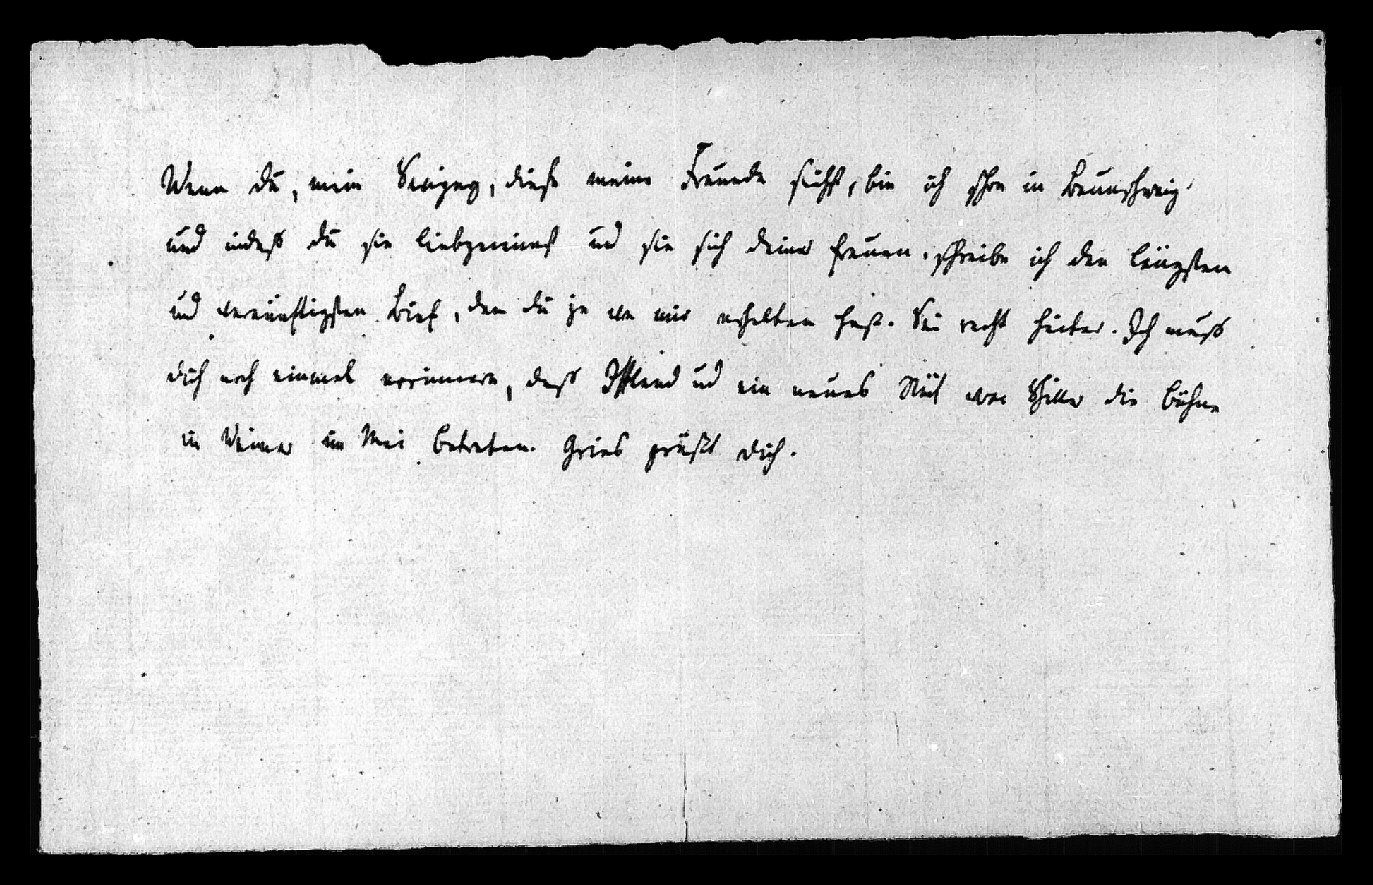 Wenn du, mein Savigny, diese meine Freunde siehst, bin ich schon in Braunschweig
und indeß du sie liebgewinnst und sie sich deiner freuen, schreibe ich den längsten
und vernünftigsten Brief, den du je von mir erhalten hast. Sei recht heiter. Ich muß
dich noch einmal erinnern, daß Iffland und ein neues Stück von Schiller die Bühne
in Weimar im Mai betreten. Gries grüßt dich.